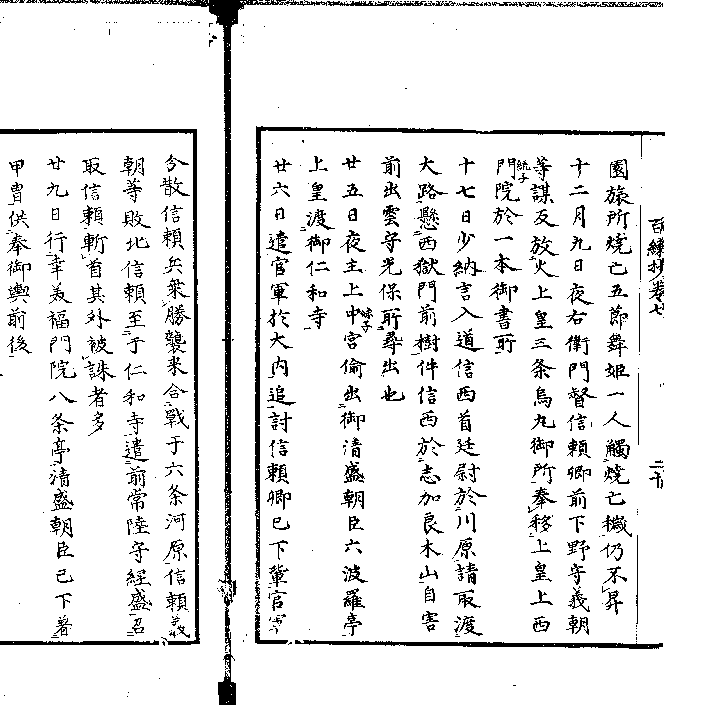 百練抄卷七
二十
園旅所焼亡五節舞姫一人觸焼亡穢仍不昇
十二月九日夜右衛門督信頼卿前下野守義朝
等謀反放火上皇三条烏丸御所奉移上皇上西
門院統子於一本御書所
十七日少納言入道信西首廷尉於川原請取渡
大路懸西獄門前樹件信西於志加良木山自害
前出雲守光保所尋出也
廿五日夜主上中宮姝子偷出御清盛朝臣六波羅亭
上皇渡御仁和寺
廿六日遣官軍於大内追討信頼卿已下輩官軍
分散信頼兵乗勝襲来合戰于六条河原信頼義
朝等敗北信頼至于仁和寺遣前常陸守経盛召
取信頼斬首其外被誅者多
廿九日行幸美福門院八条亭清盛朝臣已下著
甲冑供奉御輿前後